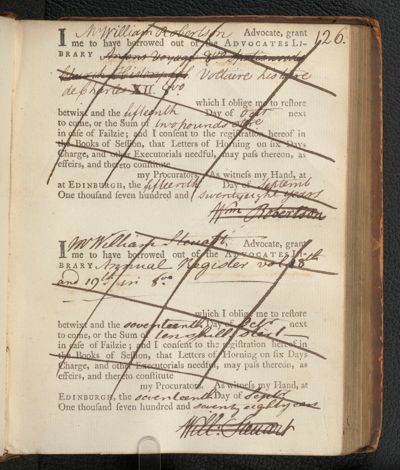 126.
I Mr William Robertson Advocate, grant
me to have borrowed out of the ADVOCATES LI-
BRARY Ansons Voyage 4to
Church History Voltaire histoire
de Charles XII 8vo
which I oblige me to restore
betwixt and the fifteenth Day of Octr next
to come, or the Sum of two pounds
in case of Failzie; and I consent to the registration hereof in
the Books of Session, that Letters of Horning on six Days
Charge, and other Executorials needful, may pass thereon, as
effeirs, and thereto constitute
my Procurators. As witness my Hand, at
at EDINBURGH, the fifteenth Day of Septemb
One thousand seven hundred and seventy eight years
Wm Robertson
I Mr William Steuart, Advocate, grant
me to have borrowed out of the ADVOCATES LI-
BRARY, Annual Register vol 18th
and 19th in 8vo
which I oblige me to restore
betwixt and the seventeenth Day of Octr next
to come, or the Sum of ten shill Sterl
in case of Failzie; and I consent to the registration hereof in
the Books of Session, that Letters of Horning on six Days
Charge, and other Executorials needful, may pass thereon, as
effeirs, and thereto constitute
my Procurators. As witness my Hand, at
EDINBURGH, the seventeenth Day of Septr
One thousand seven hundred and seventy eight years
Willm. Steuart